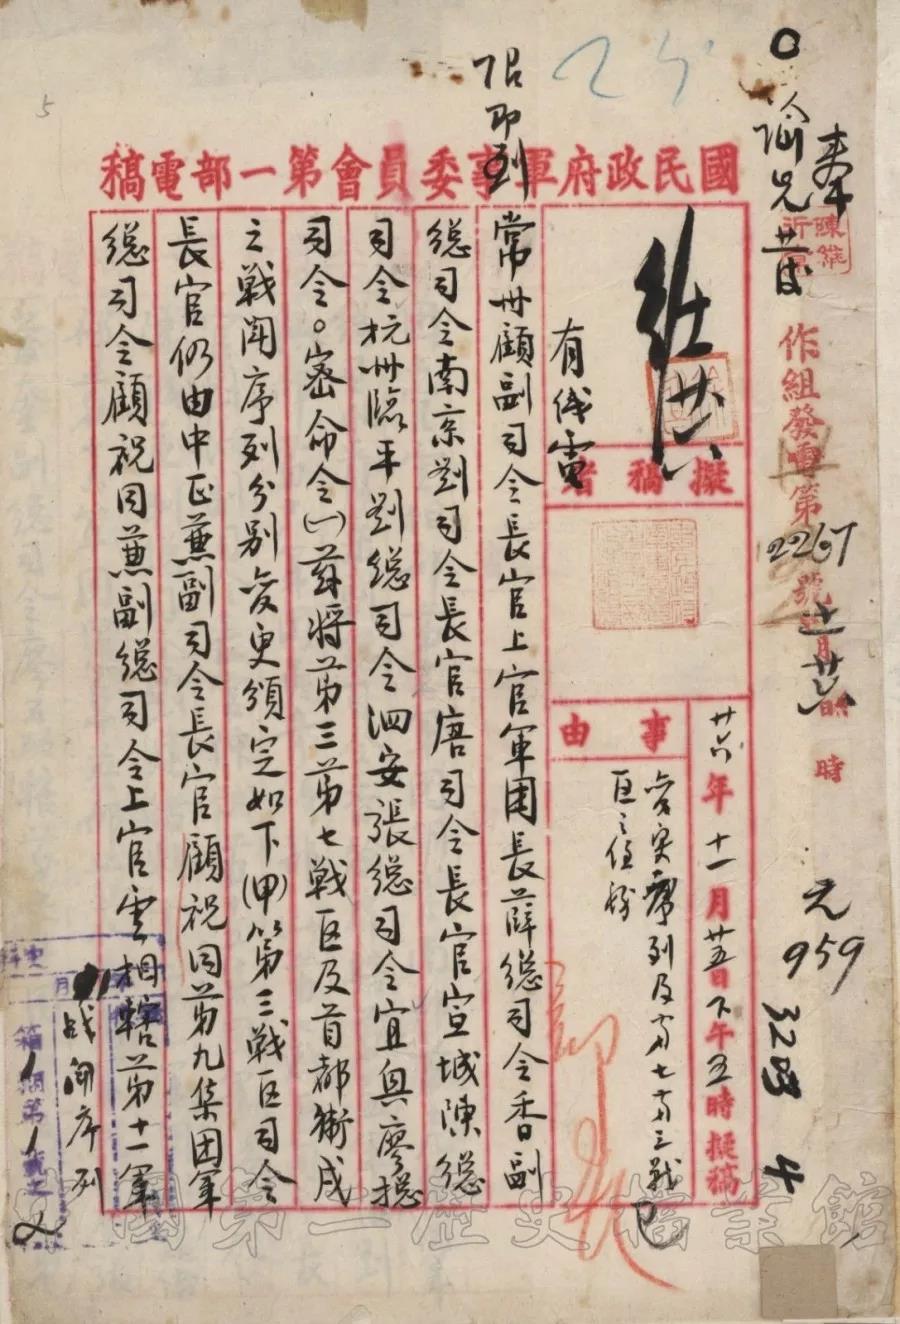 國民政府軍事委員會第一部電稿
限即到
作組發電第2267號
月 時
時
元
959
3283 4
擬稿者
事由
廿六年十一月廿五日下午五時擬稿
戰鬥序列及第七第三戰
區之任務
有线電
常州顧副司令長官上官軍團長薛總司令香副
總司令南京劉司令長官唐司令長官宣城陳總
司令杭州臨平劉總司令泗安張總司令宜興廖總
司令。密命令(一)茲將第三第七戰区及首都衛戍
之戰闘序列分别变更頒定如下(甲)第三戰区司令
長官仍由中正兼副司令長官顧祝同第九集团軍
總司令顧祝同兼副總司令上官雲相轄第十一軍
战鬥序列
5
國第二歷史檔案館